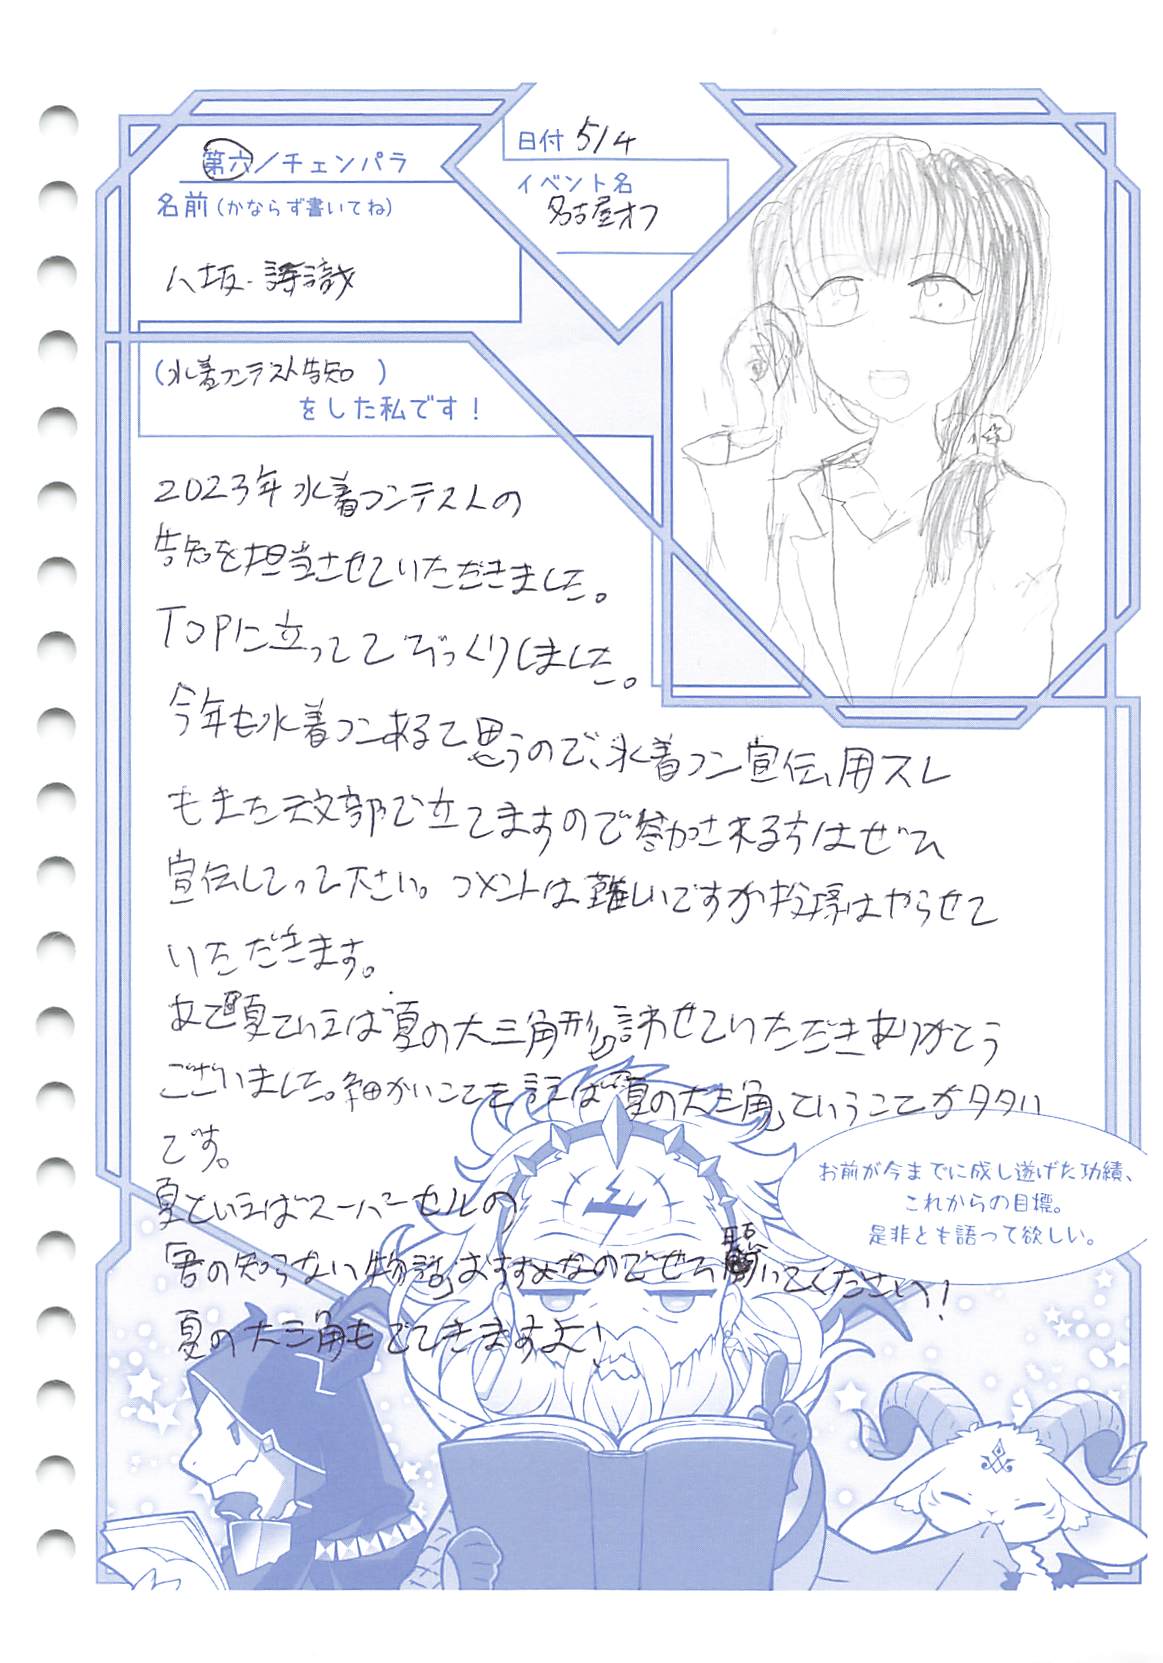 第六/チェンパラ
名前(かならず書いてね)
八坂
日付 5/4
イベント名
名古屋オフ
(水着コンテスト告知 )
をした私です!
2023年水着コンテストの
告知を担当させていただきました。
TOPに立っててびっくりしました。
今年も水着コンあると思うので、水着コン宣伝用スレ
もまた天文部で立てますので参加される方はぜひ
宣伝してって下さい。コメントは難しいですが投票はやらせて
いただきます。
あと夏といえば「夏の大三角形」 せていただきありがとう
ございました。細かいことを言えば「夏の大三角」ということがタタい
です。
夏といえばスーパーセルの
「君の知らない物語」おすすめなのでぜひ聴いてください!
夏の大三角もでてきますよ!
お前が今までに成し遂げた功績、
これからの目標。
是非とも語って欲しい。